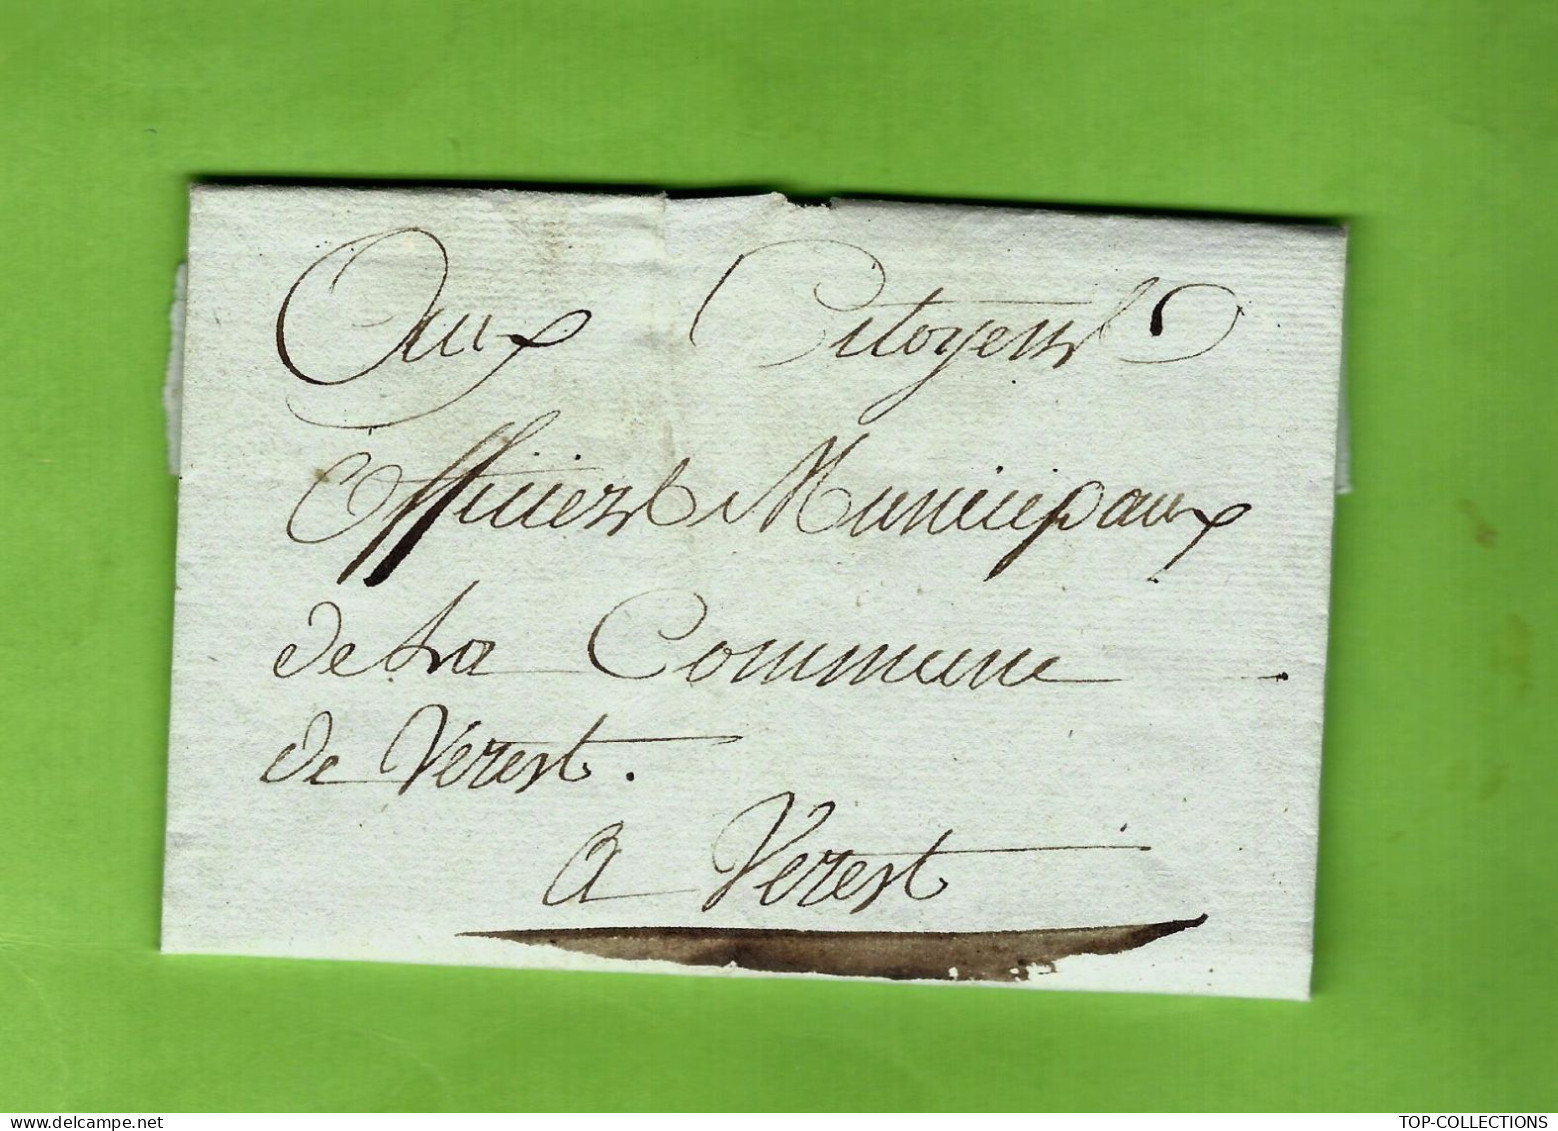 Aux Citoyens
Officiers Municipaux
de La Commune
de Verest.
a Verest
www.delcampe.net
TOP-COLLECTIONS